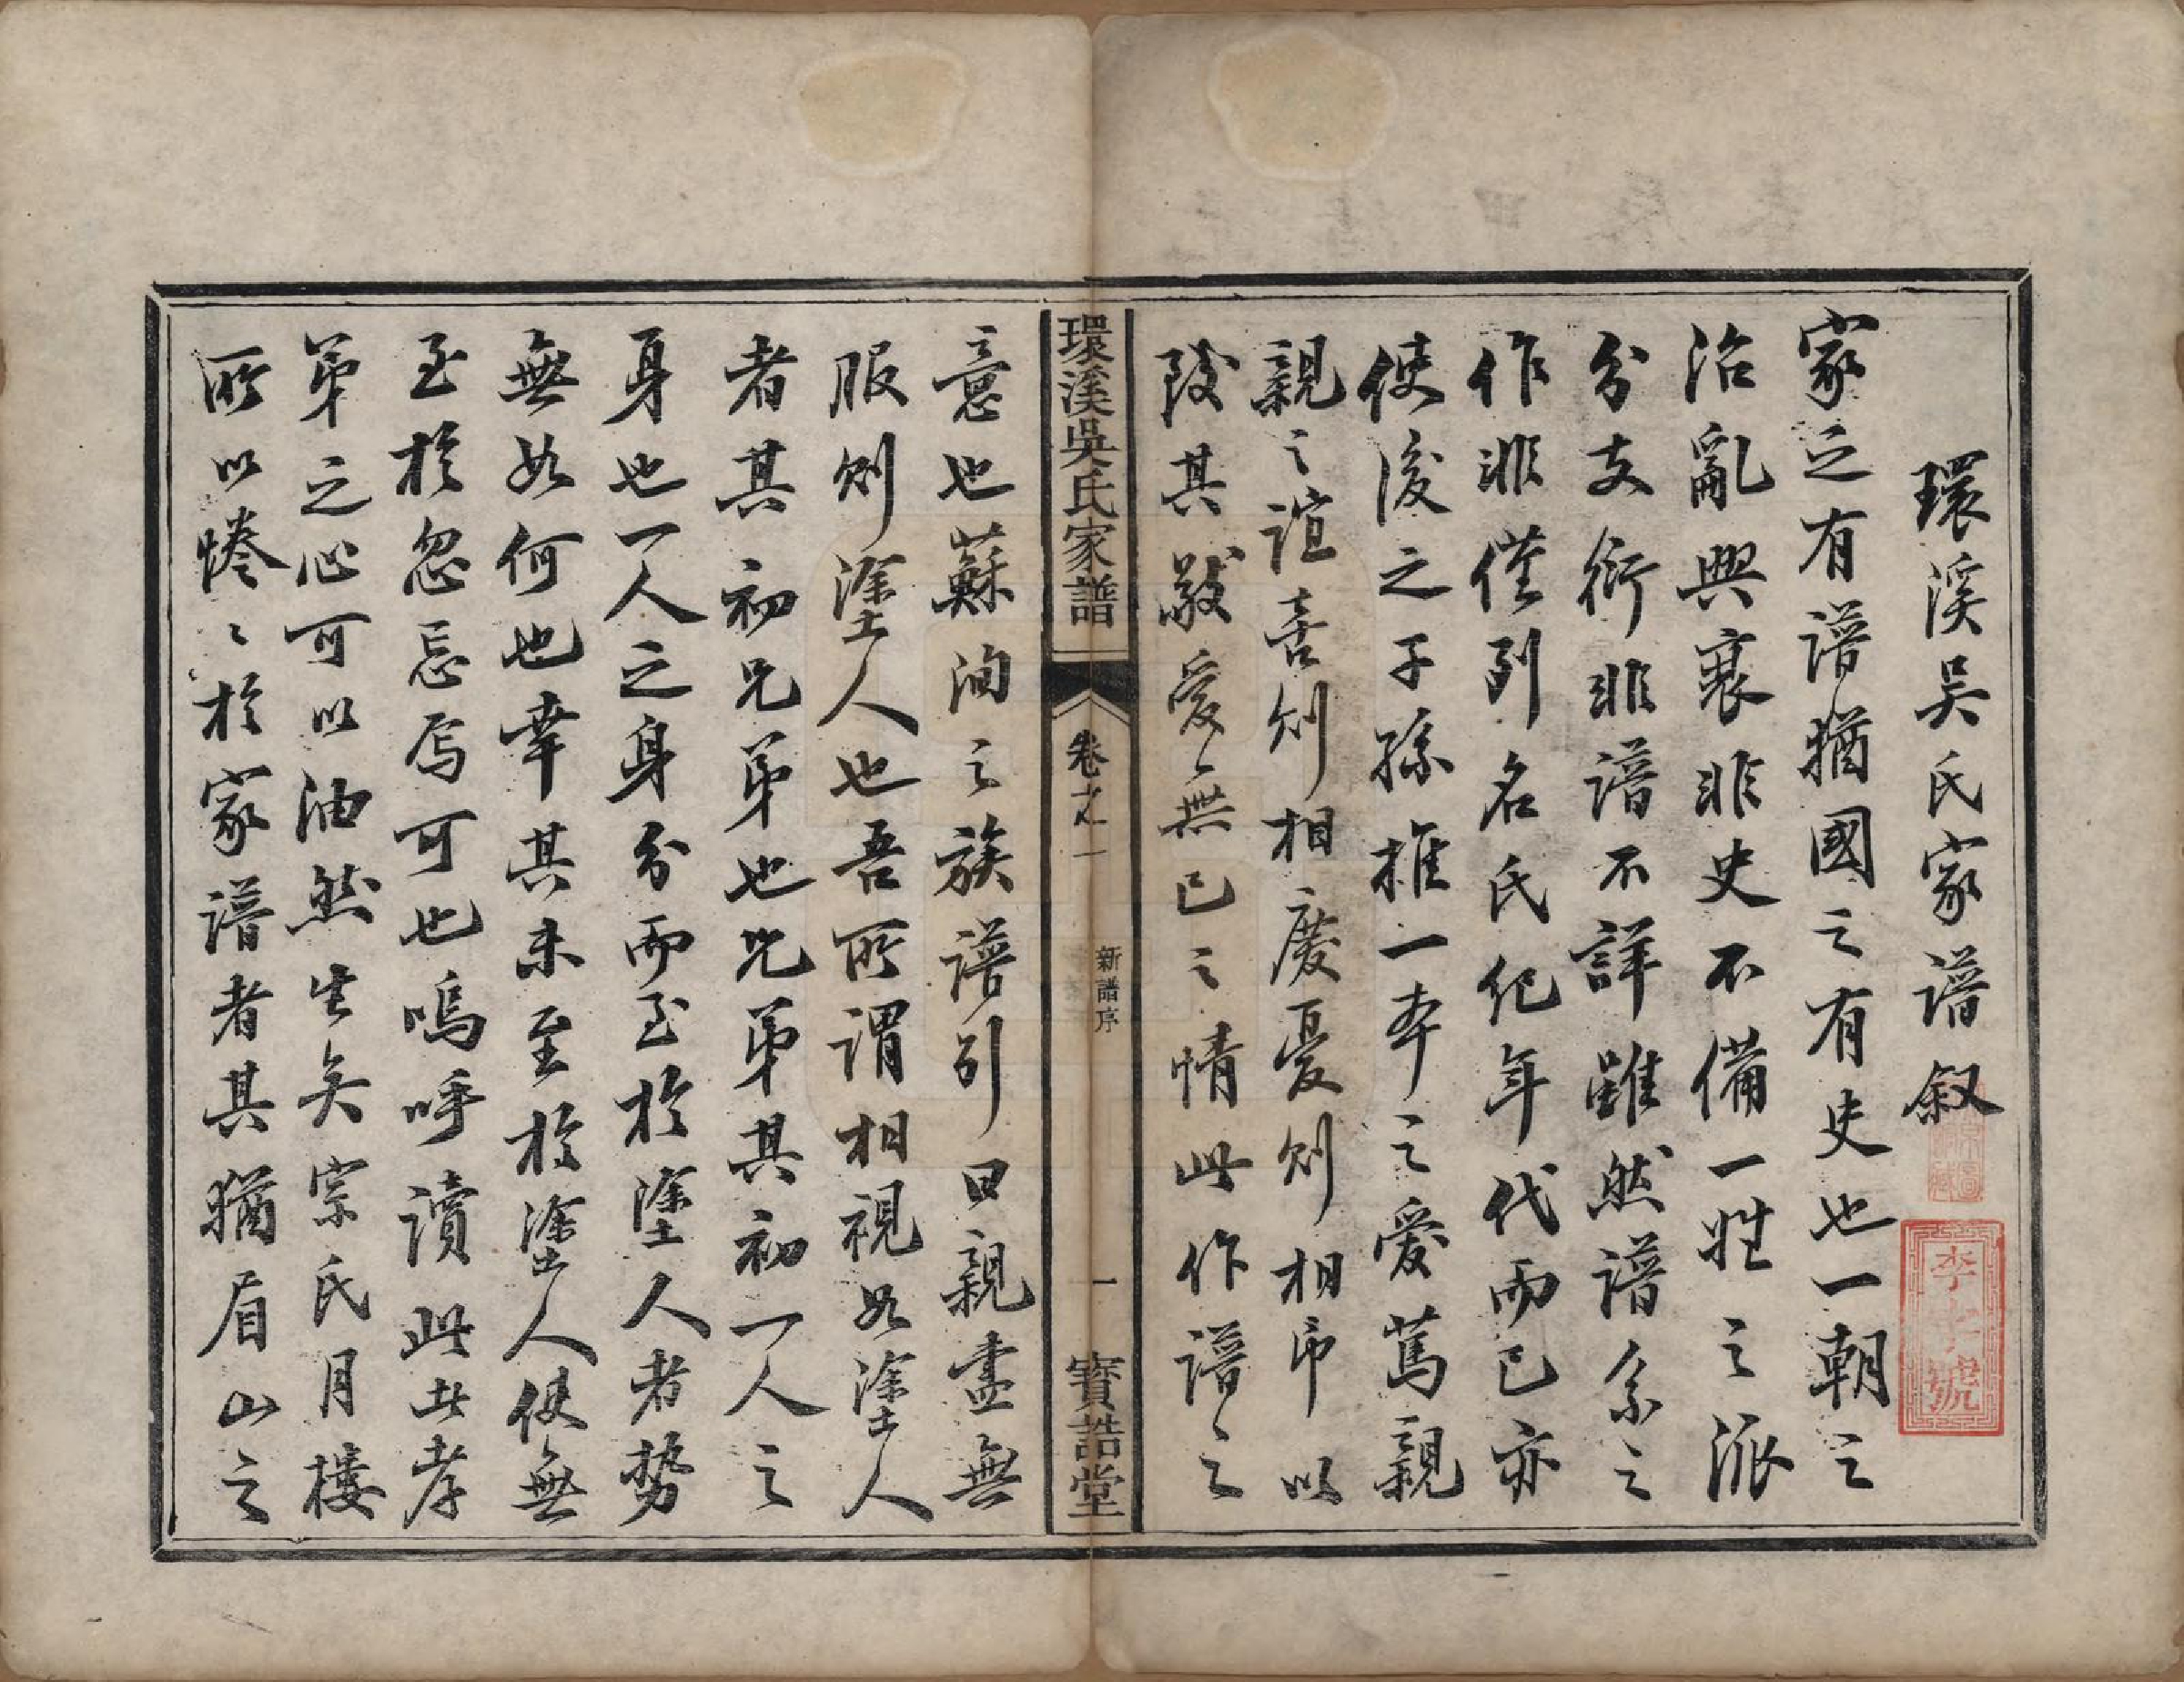 環溪吴氏家譜叙
家之有譜猶國之有史也一朝之
治亂興衰非史不備一姓之派
分支衍非譜不詳雖然譜系之
作非僅列名氏紀年代而已亦
使後之子孫推一本之愛篤親
親之誼喜則相慶憂則相弔以
致其敬愛無已之情此作譜之
環溪吳氏家譜
卷之一
新譜序
一
寶誥堂
意也蘇洵之族譜引曰親盡無
服則塗人也吾所謂相視如塗人
者其初兄弟也兄弟其初一人之
身也一人之身分而至於塗人者勢
無如何也幸其未至於塗人使無
至於忽忘焉可也嗚呼讀此者孝
弟之心可以油然生矣宗氏月樓
所以惓〻於家譜者其猶眉山之